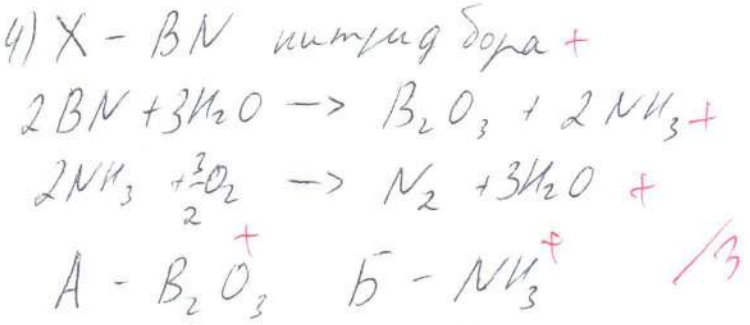 4) X - BN нитрид бора +
2BN + 3H₂O -> B₂O₃ + 2NH₃ +
2NH₃ + 3/2 O₂ -> N₂ + 3H₂O +
А - B₂O₃ + Б - NH₃ + /3